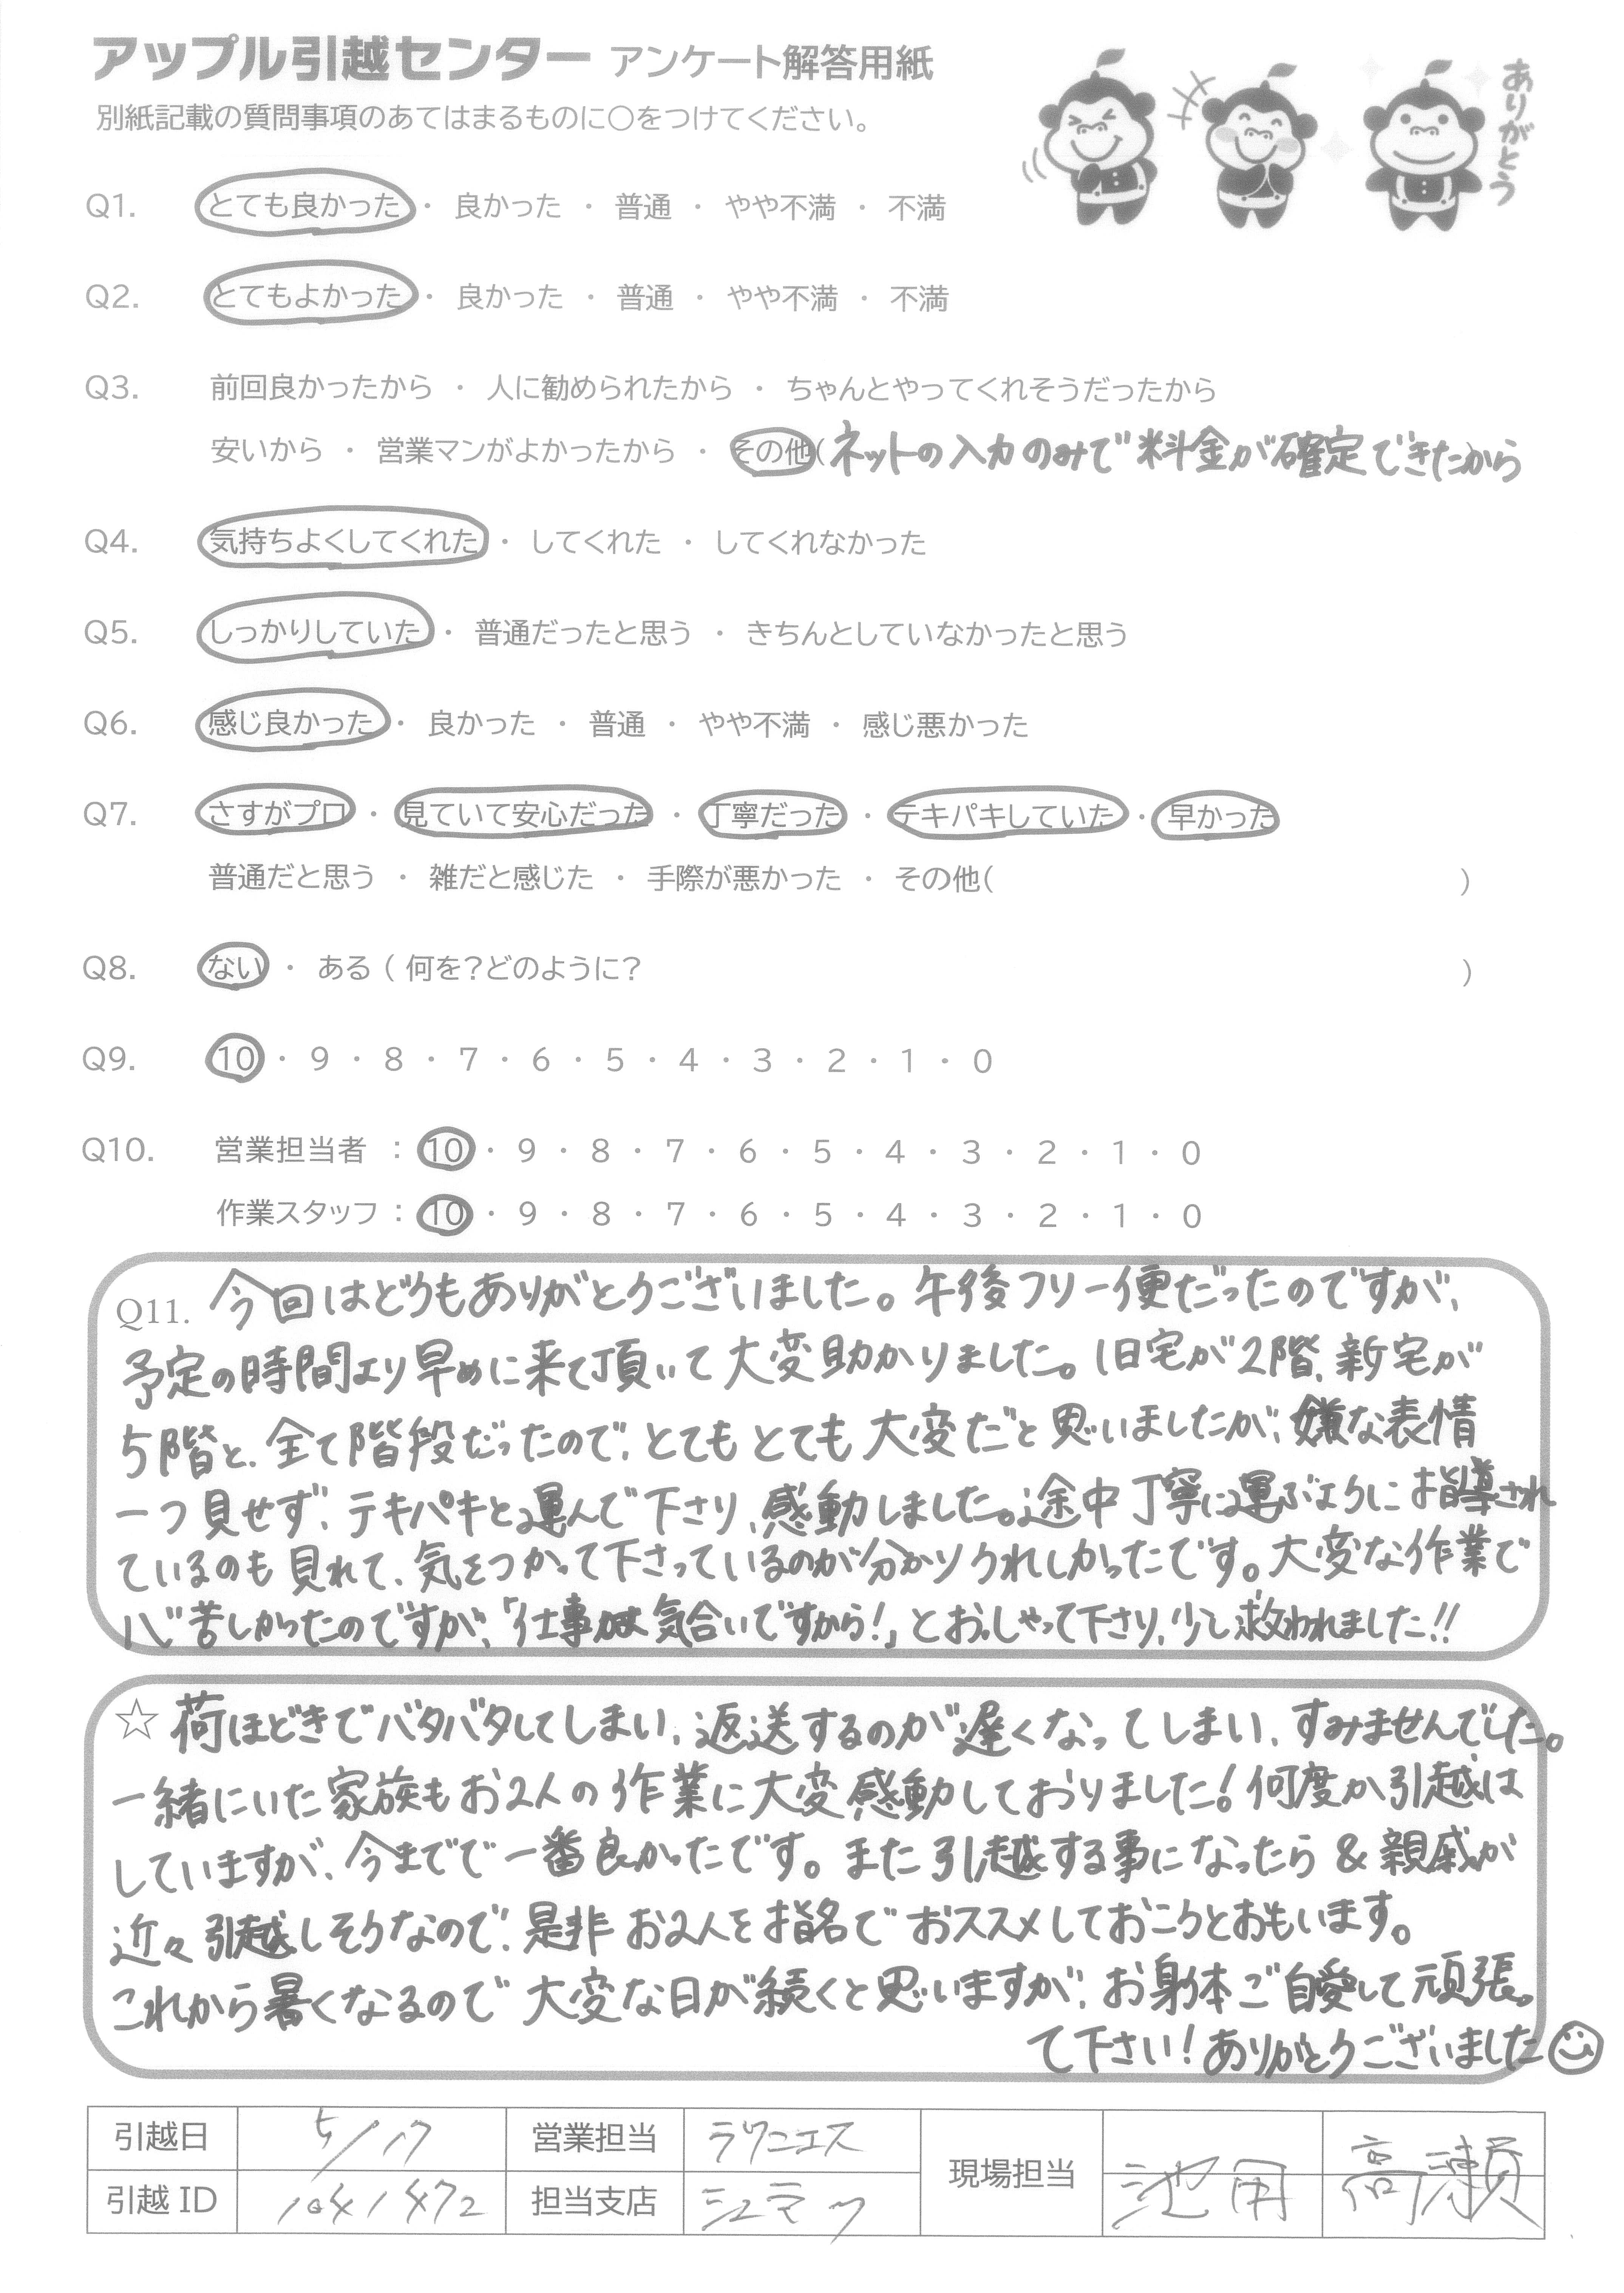 アップル引越センター アンケート解答用紙
別紙記載の質問事項のあてはまるものに○をつけてください。
ありがとう
Q1. とても良かった ・ 良かった ・ 普通 ・ やや不満 ・ 不満
Q2. とてもよかった ・ 良かった ・ 普通 ・ やや不満 ・ 不満
Q3. 前回良かったから ・ 人に勧められたから ・ ちゃんとやってくれそうだったから
安いから ・ 営業マンがよかったから ・ その他(ネットの入力のみで料金が確定できたから)
Q4. 気持ちよくしてくれた ・ してくれた ・ してくれなかった
Q5. しっかりしていた ・ 普通だったと思う ・ きちんとしていなかったと思う
Q6. 感じ良かった ・ 良かった ・ 普通 ・ やや不満 ・ 感じ悪かった
Q7. さすがプロ ・ 見ていて安心だった ・ 丁寧だった ・ テキパキしていた ・ 早かった
普通だと思う ・ 雑だと感じた ・ 手際が悪かった ・ その他( )
Q8. ない ・ ある ( 何を?どのように? )
Q9. 10 ・ 9 ・ 8 ・ 7 ・ 6 ・ 5 ・ 4 ・ 3 ・ 2 ・ 1 ・ 0
Q10. 営業担当者 : 10 ・ 9 ・ 8 ・ 7 ・ 6 ・ 5 ・ 4 ・ 3 ・ 2 ・ 1 ・ 0
作業スタッフ : 10 ・ 9 ・ 8 ・ 7 ・ 6 ・ 5 ・ 4 ・ 3 ・ 2 ・ 1 ・ 0
Q11. 今回はどうもありがとうございました。午後フリー便だったのですが、
予定の時間より早めに来て頂いて大変助かりました。旧宅が2階、新宅が
5階と、全て階段だったので、とてもとても大変だと思いましたが、嫌な表情
一つ見せず、テキパキと運んで下さり、感動しました。途中丁寧に運ぶようにお指導され
ているのも見れて、気をつかって下さっているのが分かりうれしかったです。大変な作業で
心苦しかったのですが、「仕事は気合いですから!」とおっしゃって下さり、少し救われました!!
☆ 荷ほどきでバタバタしてしまい、返送するのが遅くなってしまい、すみませんでした。
一緒にいた家族もお2人の作業に大変感動しておりました!何度か引越は
していますが、今までで一番良かったです。また引越する事になったら & 親戚が
近々引越しそうなので、是非お2人を指名でおススメしておこうとおもいます。
これから暑くなるので大変な日が続くと思いますが、お身体ご自愛して頑張っ
て下さい!ありがとうございました
引越日 5/17 営業担当 ラクニエス 現場担当 池田 高瀬
引越 ID 1041472 担当支店